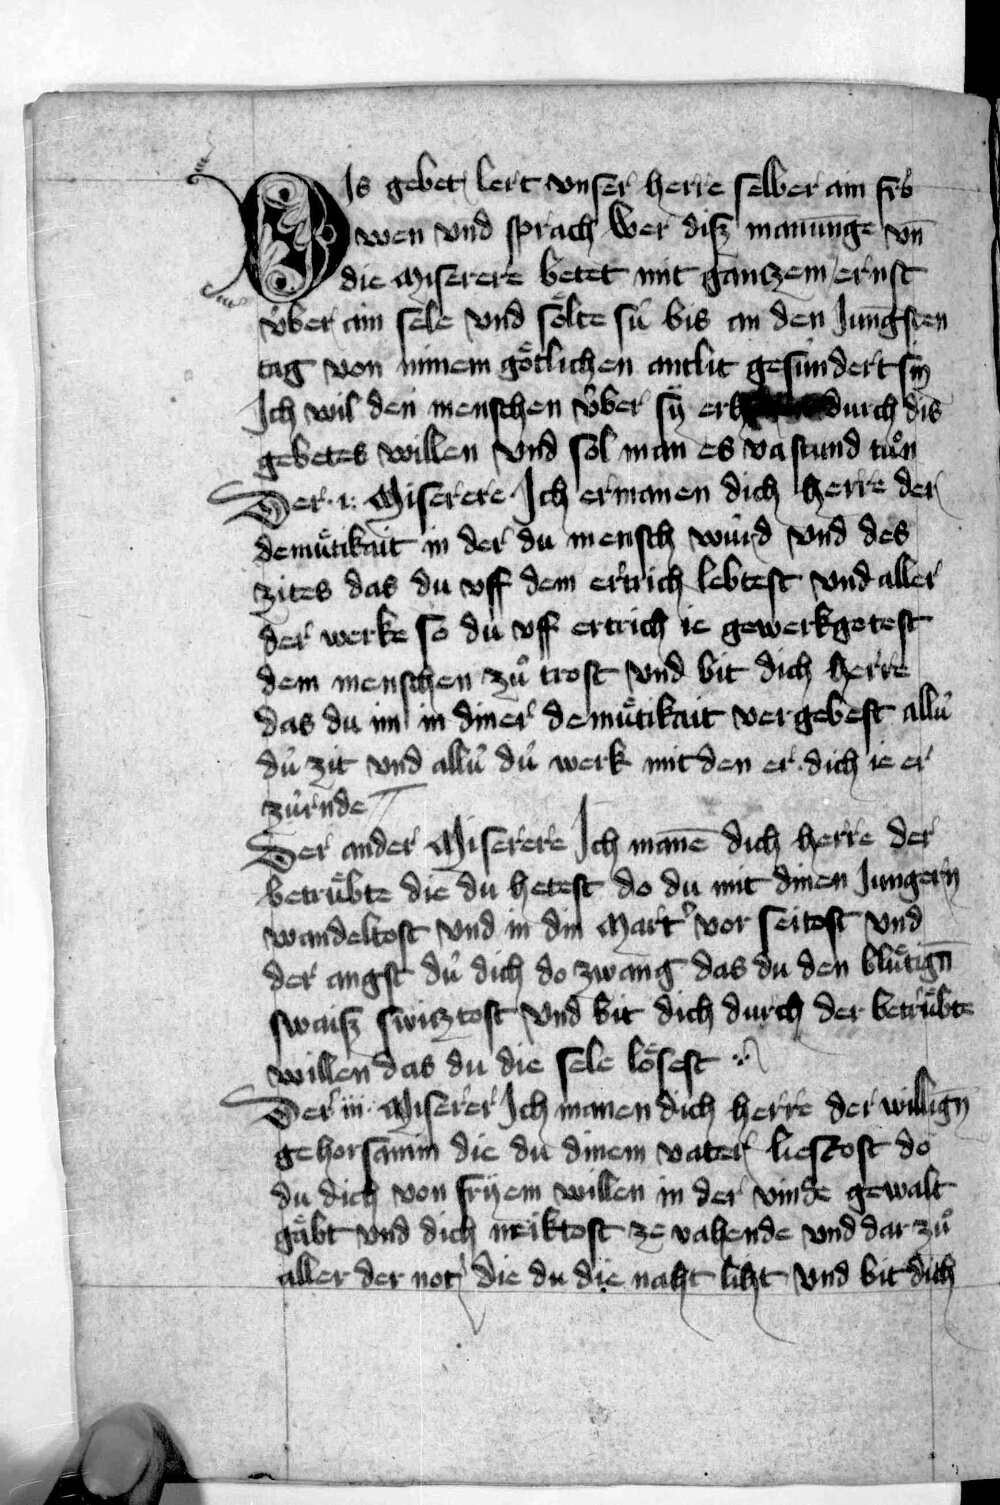 DIs gebet lert vnser herre selber ain frǒ
wen vnd sprach wer disz manūnge vn̄
die Miserere betet mit gantzem ernst
v̍ber ain sele vnd sôlte sú bis an den Jungsten
tag von minem gôtlichen antlit gesúndert sin
Ich wil den menschen v̍ber sÿ durch dis
gebetes willen vnd sol man es vastund tůn
Der .i. Miserere Ich ermanen dich herre der
demûtikait in der du mensch wúrd vnd des
zites das du vff dem ertrich lebtest vnd aller
der werke so du vff ertrich ie gewerkgotest
dem menschen zů trost vnd bit dich herre
das du im in diner demûtikait vergebest allú
dú zit vnd allú dú werk mit den er dich ie er
zúrnde
Der ander Miserere Ich manē dich herre der
betrûbte die du hetest do du mit dinen Jungern
wandeltost vnd in din Mart̓ vor seitost vnd
der angst dú dich do zwang das du den blûtign̄
swaisz switztost vnd bit dich durch der betrûbte
willen das du die sele lôsest
Der iii. Miserer Ich manen dich herre der willign̄
gehorsamin die du dinem vater liestost do
du dich von frÿem willen in der vinde gewalt
gâbt vnd dich neiktost ze vahende vnd dar zů
aller der not die du die naht liht vnd bit dich